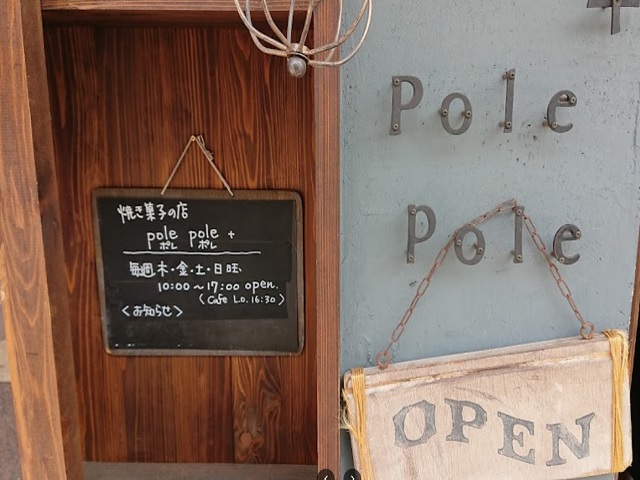 焼き菓子の店
pole pole +
ポレ ポレ
毎週 木・金・土・日 旺、
10:00～17:00 open.
（Cafe L.O. 16:30）
＜お知らせ＞
Pole
Pole
OPEN